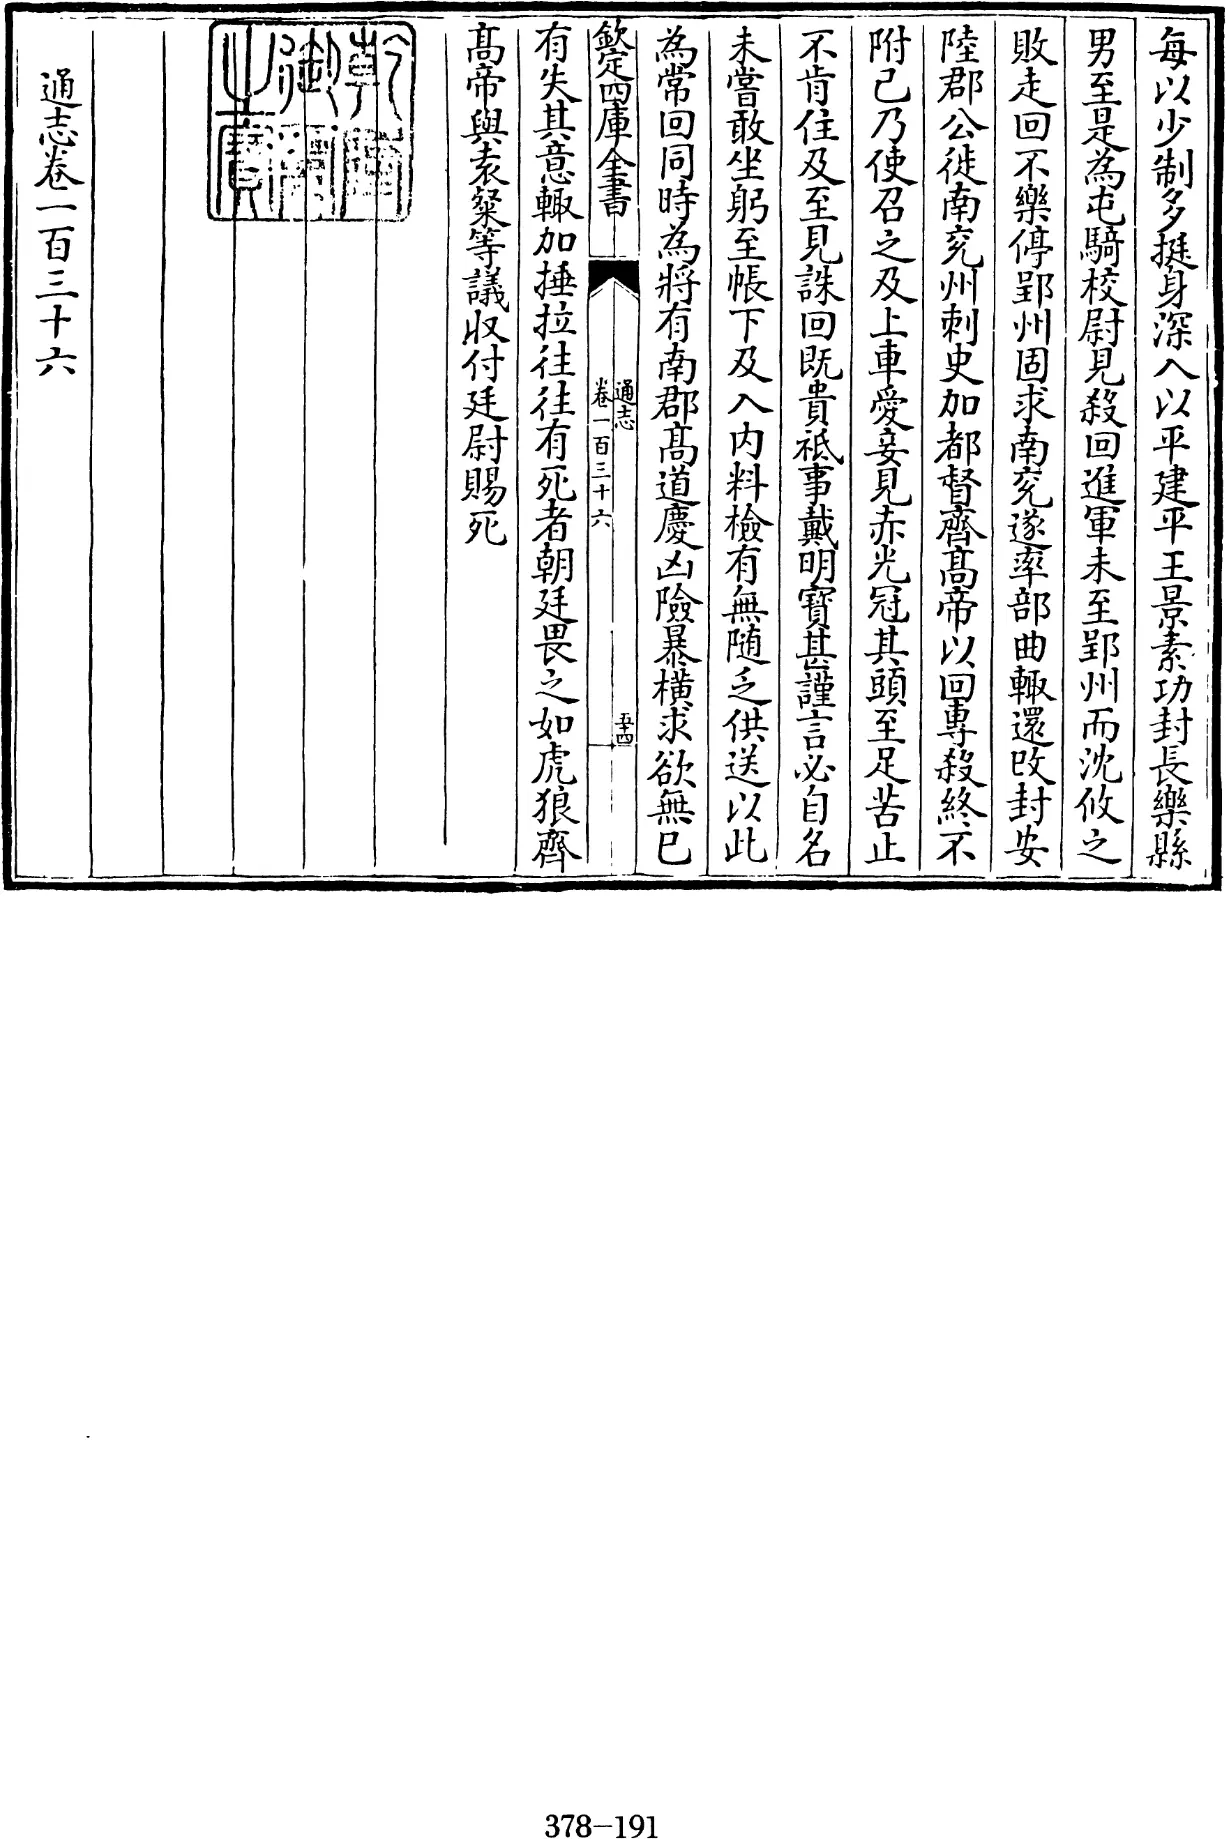 每以少制多挺身深入以平建平王景素功封長樂縣
男至是為屯騎校尉見殺回進軍未至郢州而沈攸之
敗走回不樂停郢州固求南兖遂率部曲輙還改封安
陸郡公徙南兖州刺史加都督齊髙帝以回專殺終不
附己乃使召之及上車愛妾見赤光冠其頭至足苦止
不肯住及至見誅回既貴祗事戴明寶甚謹言必自名
未嘗敢坐躬至帳下及入内料檢有無随乏供送以此
為常回同時為將有南郡髙道慶凶險暴横求欲無已
欽定四庫全書
通志
卷一百三十六
五十四
有失其意輙加捶拉往往有死者朝廷畏之如虎狼齊
髙帝與袁粲等議收付廷尉賜死
乾隆御覽之寶
通志卷一百三十六
378-191